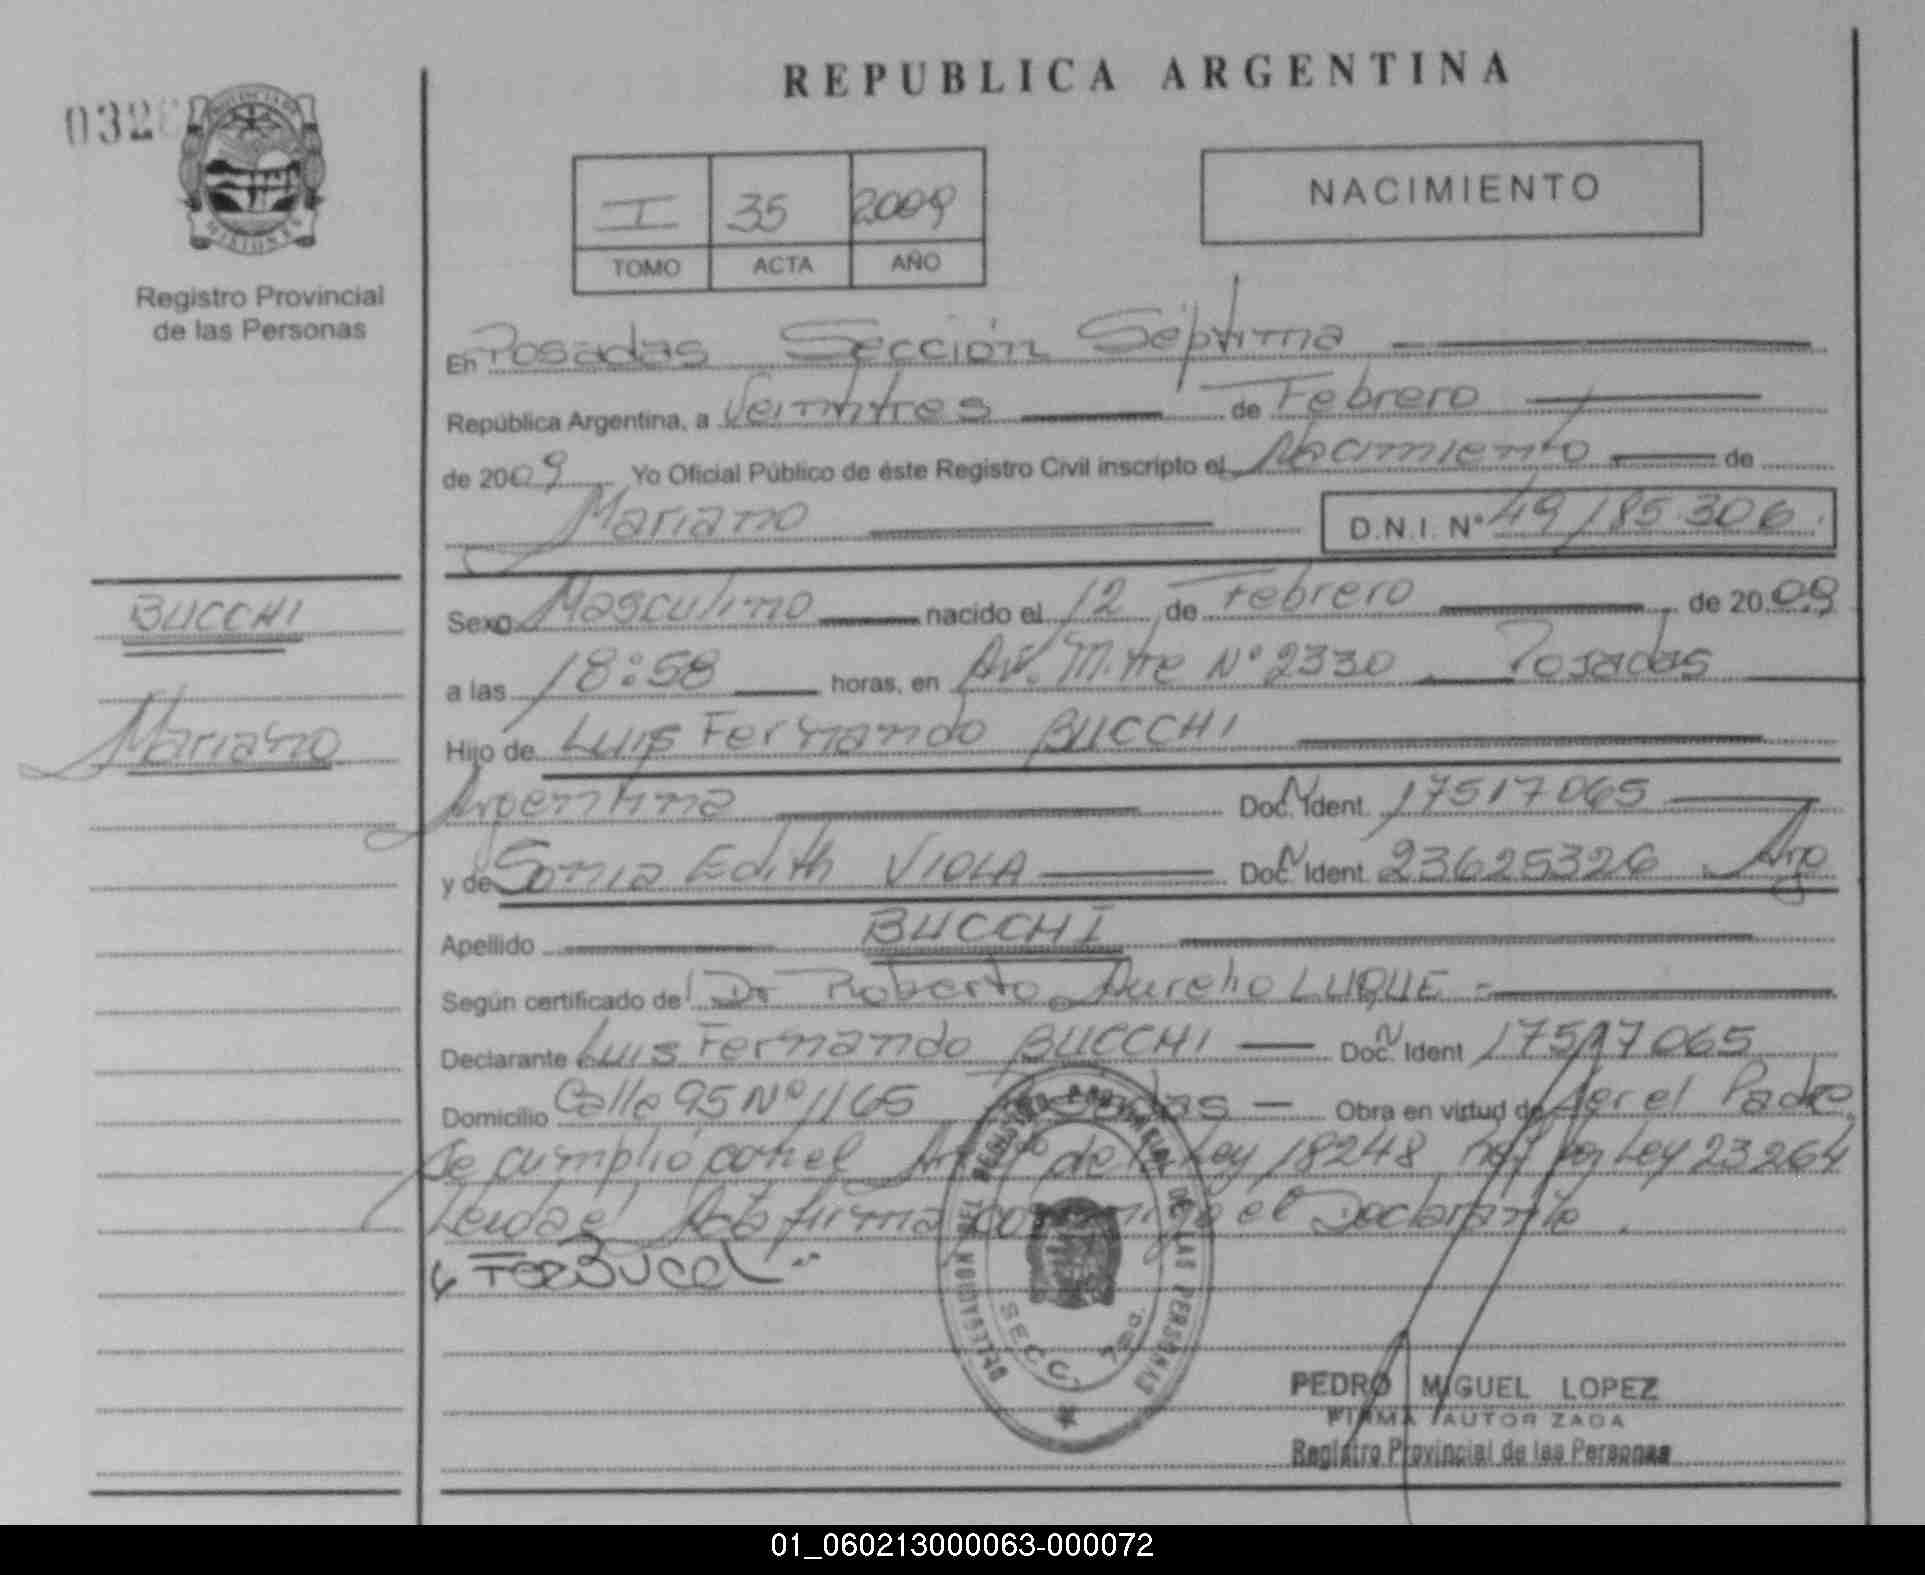 REPUBLICA ARGENTINA
032
PROVINCIA DE
MISIONES
Registro Provincial
de las Personas
I 35 2009
TOMO ACTA AÑO
NACIMIENTO
En Posadas Sección Séptima
República Argentina, a Veintitres de Febrero
de 2009 Yo Oficial Público de éste Registro Civil inscripto el Nacimiento de
Mariano D.N.I. Nº 49185.306.
BUCCHI
Mariano
Sexo Masculino nacido el 12 de Febrero de 2009
a las 18:58 horas, en Av. Mitre Nº 2330 Posadas
Hijo de Luis Fernando BUCCHI
Argentina Doc. N Ident. 17517065
y de Sonia Edith VIOLA Doc. N Ident. 23625326 Arg
Apellido BUCCHI
Según certificado de Dr Roberto Aurelio LUQUE
Declarante Luis Fernando BUCCHI Doc. N Ident 17517065
Domicilio Calle 95 Nº 1165 Posadas Obra en virtud de ser el Padre.
Se cumplió con el de la Ley 18248 por Ley 23264
Leida el Acta firma conmigo el Declarante.
REGISTRO PROVINCIAL DE LAS PERSONAS
DELEGACION
SECC. 7ma.
PEDRO MIGUEL LOPEZ
FIRMA AUTORIZADA
Registro Provincial de las Personas
01_060213000063-000072